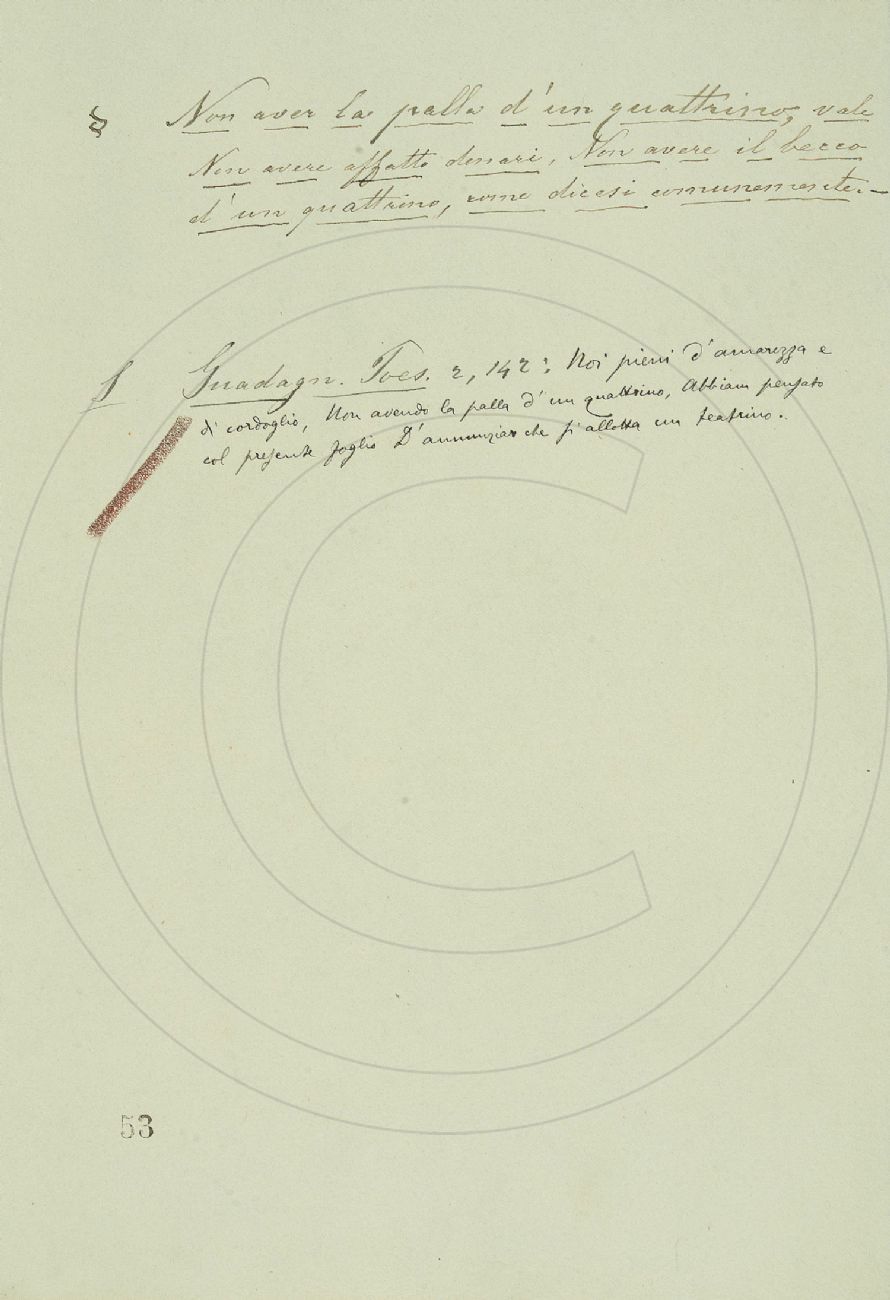 § Non aver la palla d'un quattrino, vale
Non avere affatto denari, Non avere il becco
d'un quattrino, come dicesi comunemente. —
§ Guadagn. Poes. 2, 142: Noi pieni d'amarezza e
di cordoglio, Non avendo la palla d'un quattrino, Abbiam pensato
col presente foglio D'annunziar che s'allotta un teatrino.
53